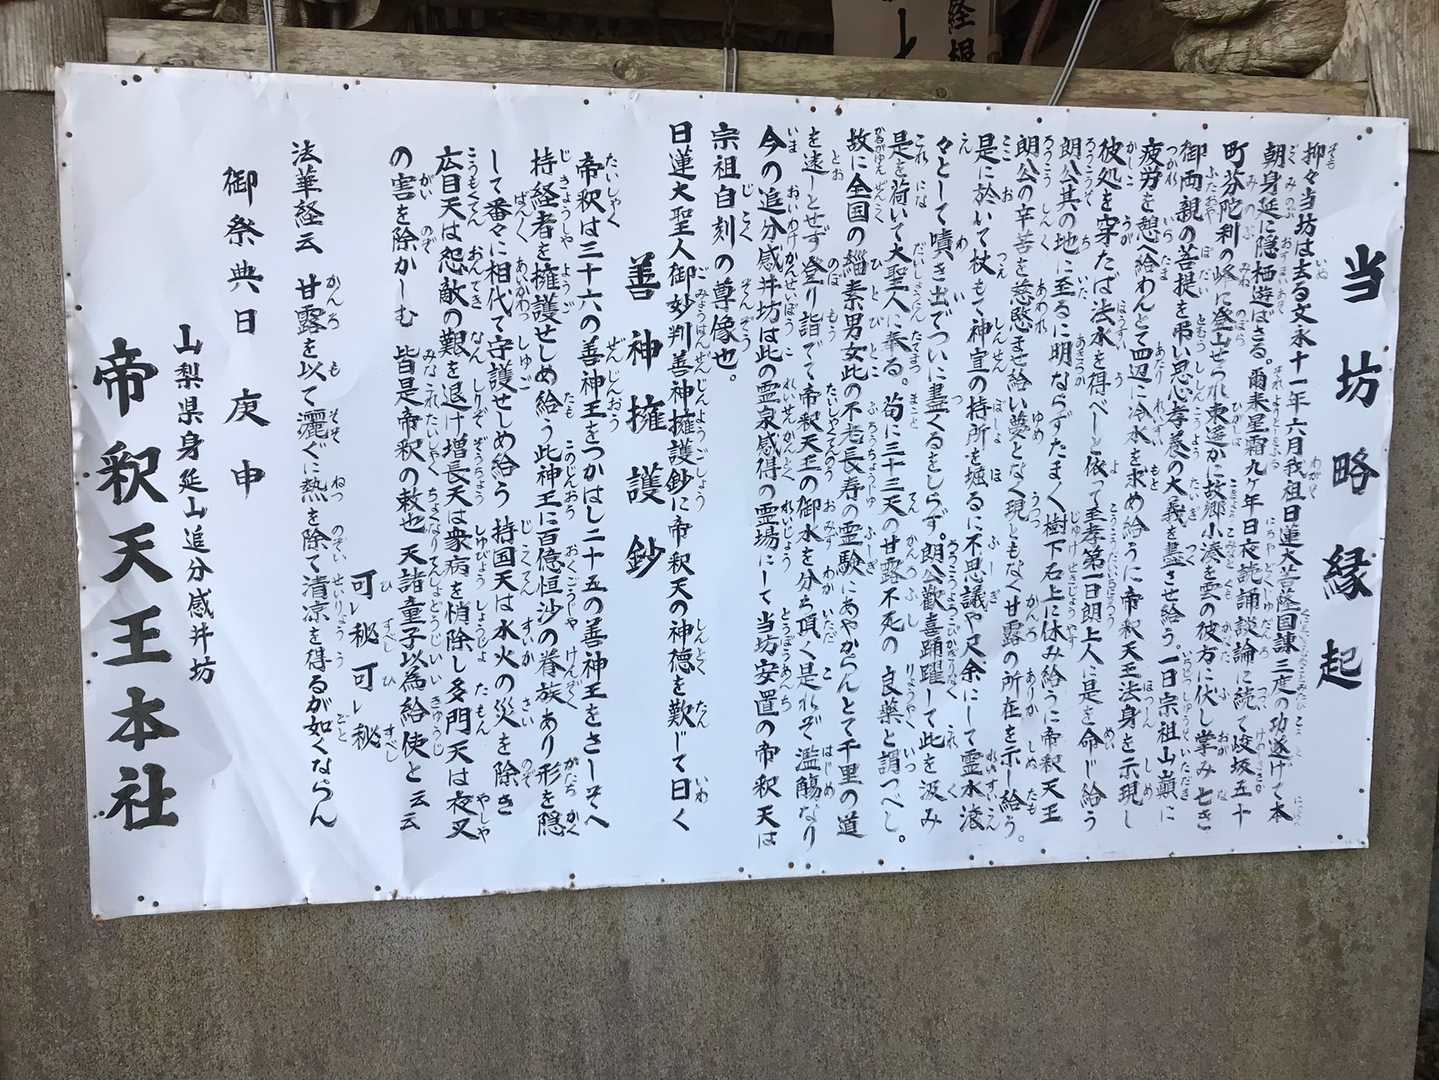 当坊略縁起
抑々当坊は去る文永十一年六月我祖日蓮大菩薩国諌三度の功遂げて本
朝身延に隠栖遊ばさる。爾来星霜九ヶ年日夜読誦談論に続て峻坂五十
町芬陀利の峰に登山せられ東遥かに故郷小湊を雲の彼方に伏し掌み亡き
御両親の菩提を弔い思い孝養の大義を尽させ給う。一日宗祖山巓に
疲労を憩へ給わんとて四辺に冷水を求め給うに帝釈天王法身を示現し
彼処を穿たば法水を得べしと依って至孝第一日朗上人に是を命じ給う
朗公其の地に至るに明ならずたまく樹下石上に休み給うに帝釈天王
朗公の辛苦を慈愍ませ給い夢となく現ともなく甘露の所在を示し給う。
是に於いて杖もて神宣の持所を堀るに不思議や尺余にして霊水滾
々として噴き出でついに盡くるをしらず。朗公歓喜踊躍して此を汲み
是を荷いて大聖人に奉る。苟に三十三天の甘露不死の良薬と謂つべし。
故に全国の緇素男女此の不老長寿の霊験にあやからんとて千里の道
を遠しとせず登り詣でて帝釈天王の御水を分ち頂く是れぞ濫觴なり
今の追分感井坊は此の霊泉感得の霊場にして当坊安置の帝釈天は
宗祖自刻の尊像也。
日蓮大聖人御妙判善神擁護鈔に帝釈天の神徳を歎じて曰く
善神擁護鈔
帝釈は三十六の善神王をつかはし二十五の善神王をさしそへ
持経者を擁護せしめ給う此神王に百億恒沙の眷族あり形を隠
して番々に相代て守護せしめ給う 持国天は水火の災を除き
広目天は怨敵の難を退け増長天は衆病を悄除し多門天は夜叉
の害を除かしむ 皆是帝釈の敕也 天諸童子以為給使と云云
可レ秘可レ秘
法華経云 甘露を以て灑ぐに熱を除て清凉を得るが如くならん
御祭典日 庚申
山梨県身延山追分感井坊
帝釈天王本社